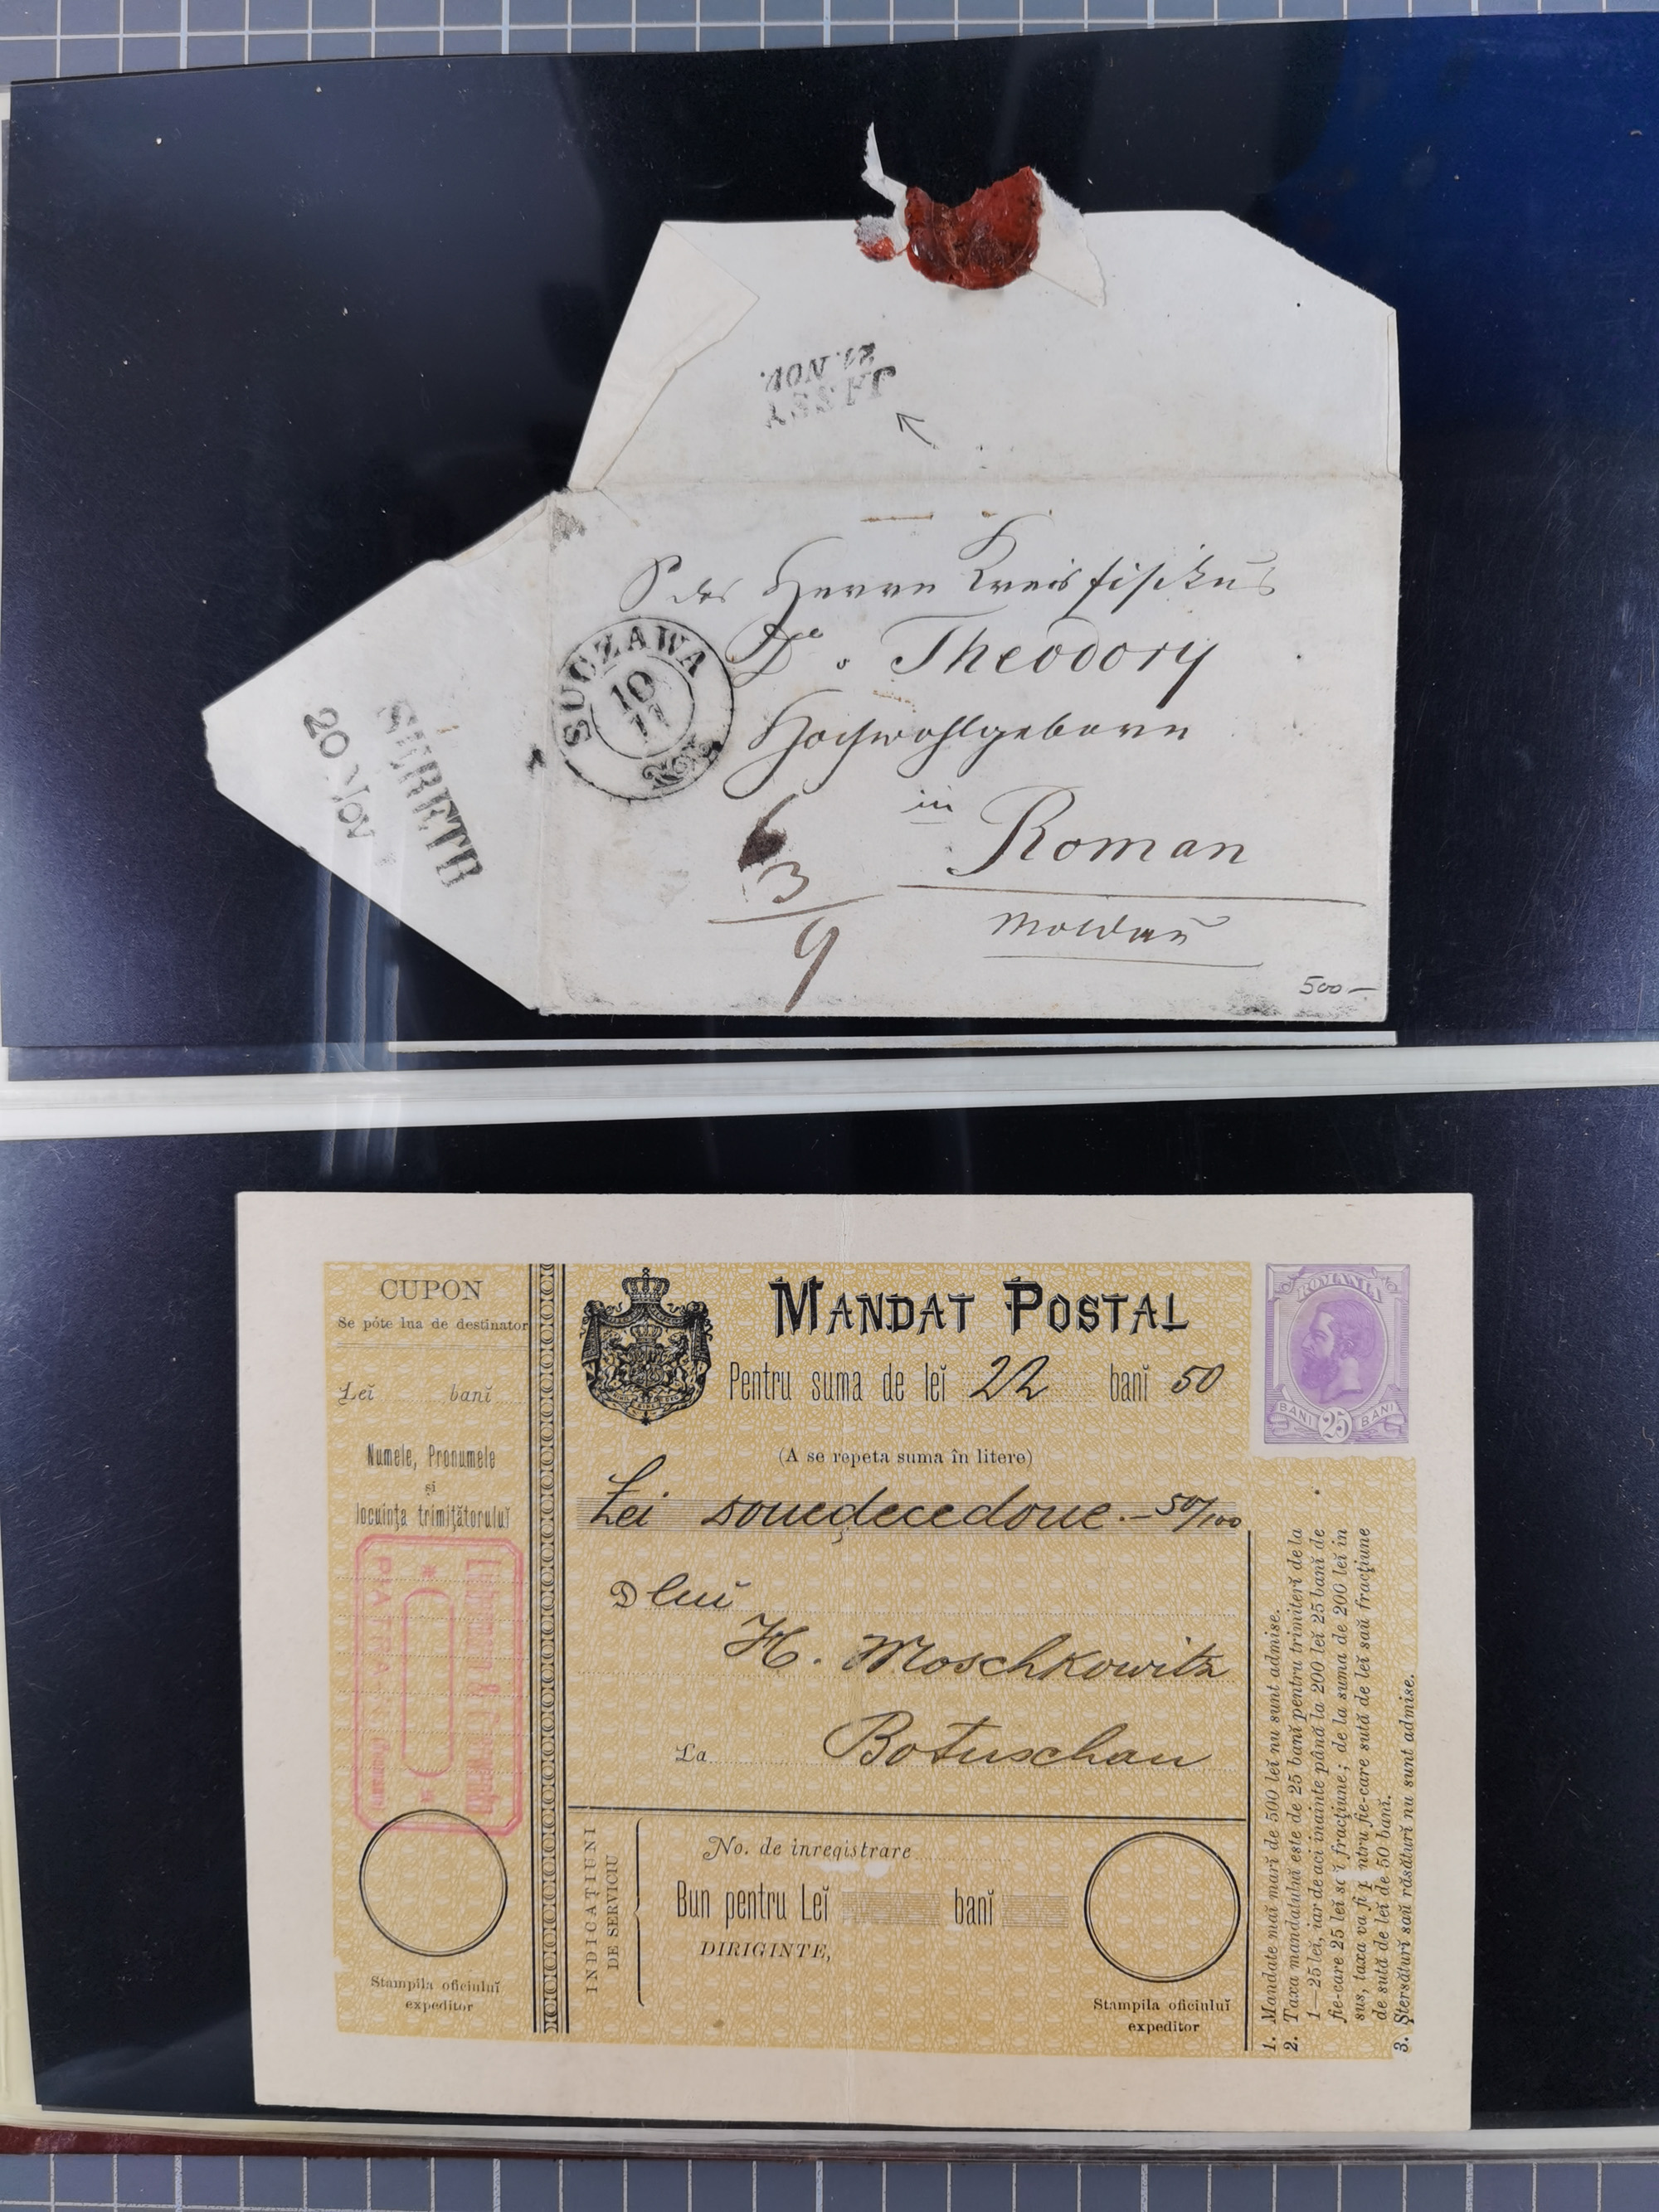 JASSY
21. NOV.
Herrn Kreisfisikus
Dr. Theodory
Hochwohlgeborn
in
Roman
Moldau
SUCZAWA
10
11
SERETH
20 NOV
6
3
9
500—
CUPON
Se póte lua de destinator
Leĭ banĭ
Numele, Pronumele
și
locuința trimițătoruluĭ
PIATRA
Stampila oficiuluĭ
expeditor
MANDAT POSTAL
Pentru suma de leĭ 22 banĭ 50
(A se repeta suma în litere)
Lei douedecedoue.— 50/100
D luĭ
H. Moschkowitz
La Botuschan
INDICAȚIUNI
DE SERVICIU
No. de înregistrare
Bun pentru Leĭ banĭ
DIRIGINTE,
Stampila oficiuluĭ
expeditor
ROMANIA
BANI 25 BANI
1. Mandate maĭ marĭ de 500 leĭ nu sunt admise.
2. Taxa mandatuluĭ este de 25 banĭ pentru trimiterĭ de la
1—25 leĭ, iar de aci înainte până la 200 leĭ 25 banĭ de
fie-care 25 leĭ saŭ fracțiune; de la suma de 200 leĭ în
sus, taxa va fi pentru fie-care sută de leĭ saŭ fracțiune
de sută de leĭ de 50 banĭ.
3. Ștersăturĭ saŭ răsăturĭ nu sunt admise.